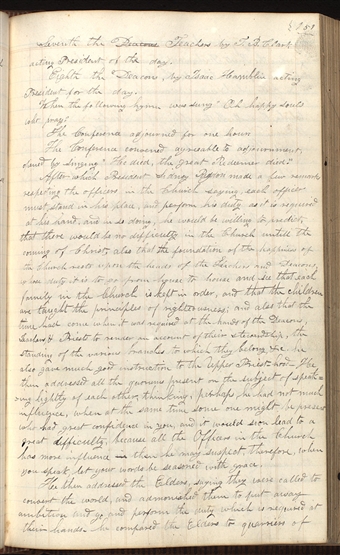 151
Seventh the Deacons Teachers by T. B. Clark
acting President of the day.
Eighth the Deacons, by Isaac Hamblin acting
President for the day.
When the following hymn was sung: Oh happy souls
who pray:
The Conference adjourned for one hour
The Conference convened agreeable to adjournment,
opened by singing "He died, the great Redeemer died."
After which President Sidney Rigdon made a few remarks
respecting the officers in the Church saying each officer
must stand in his place, and perform his duty as it is required
at his hand, and in so doing, he would be willing to predict,
that there would be no difficulty in the Church untill the
coming of Christ, also that the foundation of the happiness of
the Church rests upon the heads of the Teachers and Deacons,
whose duty it is to go from house to house and see that each
family in the Church is kept in order, and that the children
are taught the principles of righteousness: and also that the
time has come when it was required at the hands of the Deacons,
Teachers & Priest to render an account of their stewardship, the
standing of the various branches, to which they belong, &c. He
also gave much good instruction to the upper Priesthood. He
then addressed all the quorums present on the subject of speak-
ing lightly of each other, thinking, perhaps, he had not much
influence, when at the same time some one might be present
who had great confidence in you and it would soon lead to a
great difficulty, because all the Officers in the Church
has more influence than he may suspect, therefore, when
you speak, let your words be seasoned with grace.
He then addressed the Elders, saying they were called to
convert the world, and admonished them to put away
ambition and go and perform the duty which is required at
their hands he compared the Elders to quarriers of